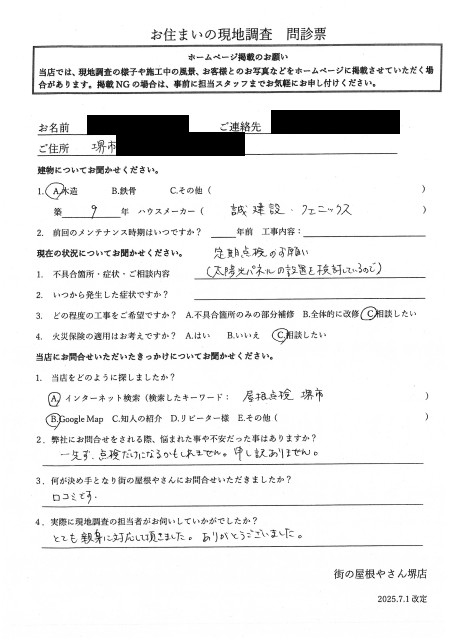 お住まいの現地調査 問診票
ホームページ掲載のお願い
当店では、現地調査の様子や施工中の風景、お客様とのお写真などをホームページに掲載させていただく場
合があります。掲載NGの場合は、事前に担当スタッフまでお気軽にお申し付けください。
お名前 ご連絡先
ご住所 堺市
建物についてお聞かせください。
1. A.木造 B.鉄骨 C.その他( )
築 9 年 ハウスメーカー( 誠建設・フェニックス )
2. 前回のメンテナンス時期はいつですか? 年前 工事内容:
現在の状況についてお聞かせください。 定期点検のお願い
1. 不具合箇所・症状・ご相談内容 (太陽光パネルの設置を検討しているので)
2. いつから発生した症状ですか?
3. どの程度の工事をご希望ですか? A.不具合箇所のみの部分補修 B.全体的に改修 C.相談したい
4. 火災保険の適用はお考えですか? A.はい B.いいえ C.相談したい
当店にお問合せいただいたきっかけについてお聞かせください。
1. 当店をどのように探しましたか?
A. インターネット検索(検索したキーワード: 屋根点検 堺市 )
B.Google Map C.知人の紹介 D.リピーター様 E.その他( )
2.弊社にお問合せをされる際、悩まれた事や不安だった事はありますか?
一先ず、点検だけになるかもしれません。申し訳ありません。
3.何が決め手となり街の屋根やさんにお問合せいただきましたか?
口コミです。
4.実際に現地調査の担当者がお伺いしていかがでしたか?
とても親身に対応して頂きました。ありがとうございました。
街の屋根やさん堺店
2025.7.1改定